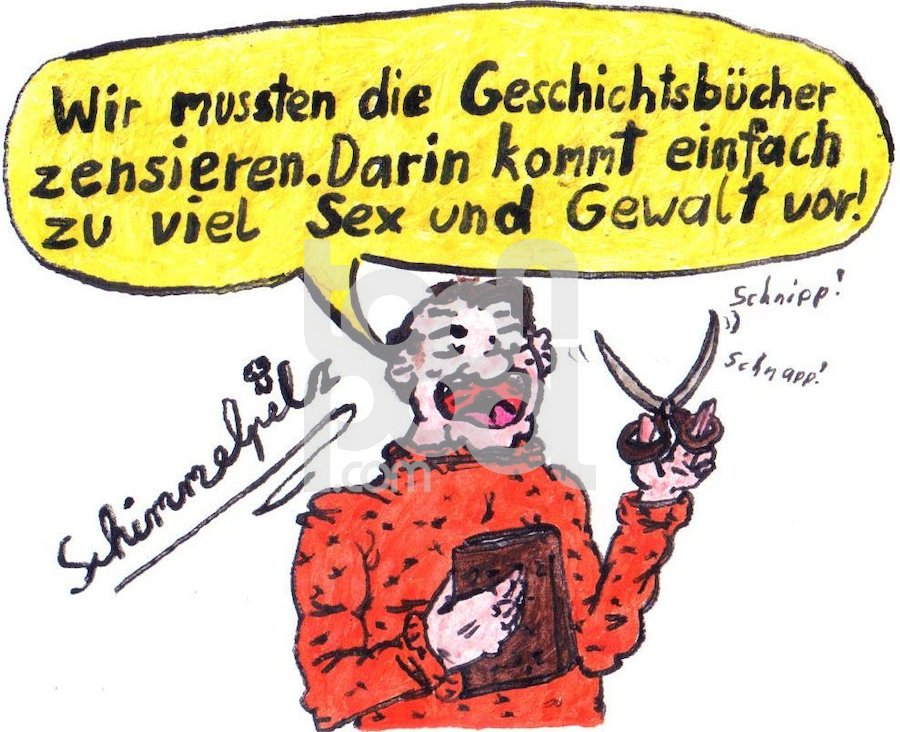 Wir mussten die Geschichtsbücher
zensieren. Darin kommt einfach
zu viel Sex und Gewalt vor!
Schnipp!
Schnapp!
Schimmelpilz
.com